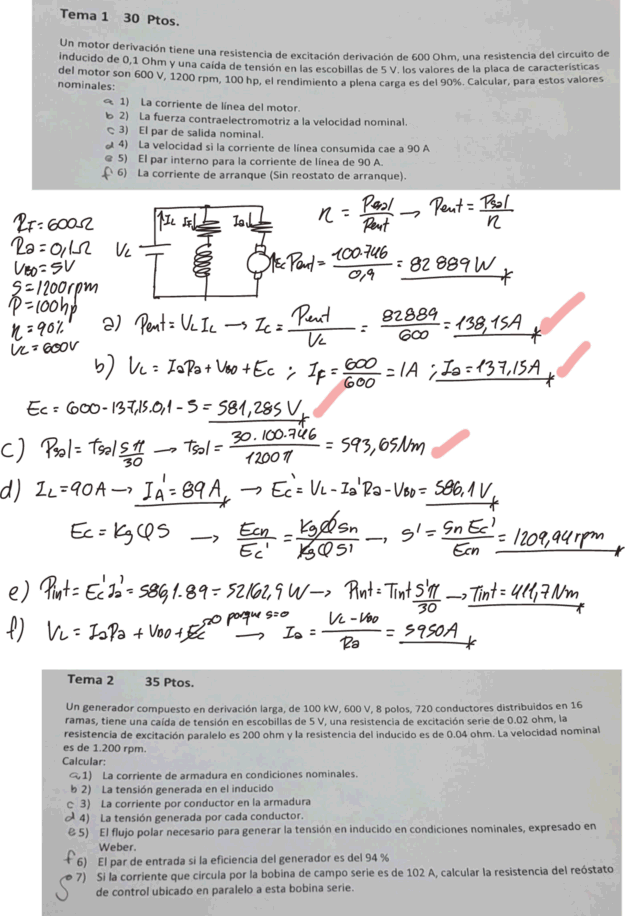 Tema 1 30 Ptos.
Un motor derivación tiene una resistencia de excitación derivación de 600 Ohm, una resistencia del circuito de
inducido de 0,1 Ohm y una caída de tensión en las escobillas de 5 V. los valores de la placa de características
del motor son 600 V, 1200 rpm, 100 hp, el rendimiento a plena carga es del 90%. Calcular, para estos valores
nominales:
a 1) La corriente de línea del motor.
b 2) La fuerza contraelectromotriz a la velocidad nominal.
c 3) El par de salida nominal.
d 4) La velocidad si la corriente de línea consumida cae a 90 A
e 5) El par interno para la corriente de línea de 90 A.
f 6) La corriente de arranque (Sin reostato de arranque).
RF=600Ω
Ra=0,1Ω
VBO=5V
S=1200rpm
P=100hp
η=90%
VL=600V
VL IL IF Ia Ec
η = Psal/Pent → Pent = Psal/η
Pent = 100.746/0,9 = 82889W
a) Pent = VL IL → IL = Pent/VL = 82889/600 = 138,15A
b) VL = IaRa + VBO + Ec ; IF = 600/600 = 1A ; Ia = 137,15A
Ec = 600 - 137,15.0,1 - 5 = 581,285V
c) Psal = Tsal Sπ/30 → Tsal = 30.100.746/1200π = 593,65Nm
d) IL = 90A → IA' = 89A → Ec' = VL - Ia'Ra - VBO = 586,1V
Ec = KgφS → Ecn/Ec' = KgφSn/KgφS' → S' = SnEc'/Ecn = 1209,94rpm
e) Pint = Ec'Ia' = 586,1.89 = 52162,9W → Pint = Tint S'π/30 → Tint = 411,7Nm
f) VL = IaRa + VBO + Ec 0 porque S=0 → Ia = VL-VBO/Ra = 5950A
Tema 2 35 Ptos.
Un generador compuesto en derivación larga, de 100 kW, 600 V, 8 polos, 720 conductores distribuidos en 16
ramas, tiene una caída de tensión en escobillas de 5 V, una resistencia de excitación serie de 0.02 ohm, la
resistencia de excitación paralelo es 200 ohm y la resistencia del inducido es de 0.04 ohm. La velocidad nominal
es de 1.200 rpm.
Calcular:
a 1) La corriente de armadura en condiciones nominales.
b 2) La tensión generada en el inducido
c 3) La corriente por conductor en la armadura
d 4) La tensión generada por cada conductor.
e 5) El flujo polar necesario para generar la tensión en inducido en condiciones nominales, expresado en
Weber.
f 6) El par de entrada si la eficiencia del generador es del 94 %
g 7) Si la corriente que circula por la bobina de campo serie es de 102 A, calcular la resistencia del reóstato
de control ubicado en paralelo a esta bobina serie.